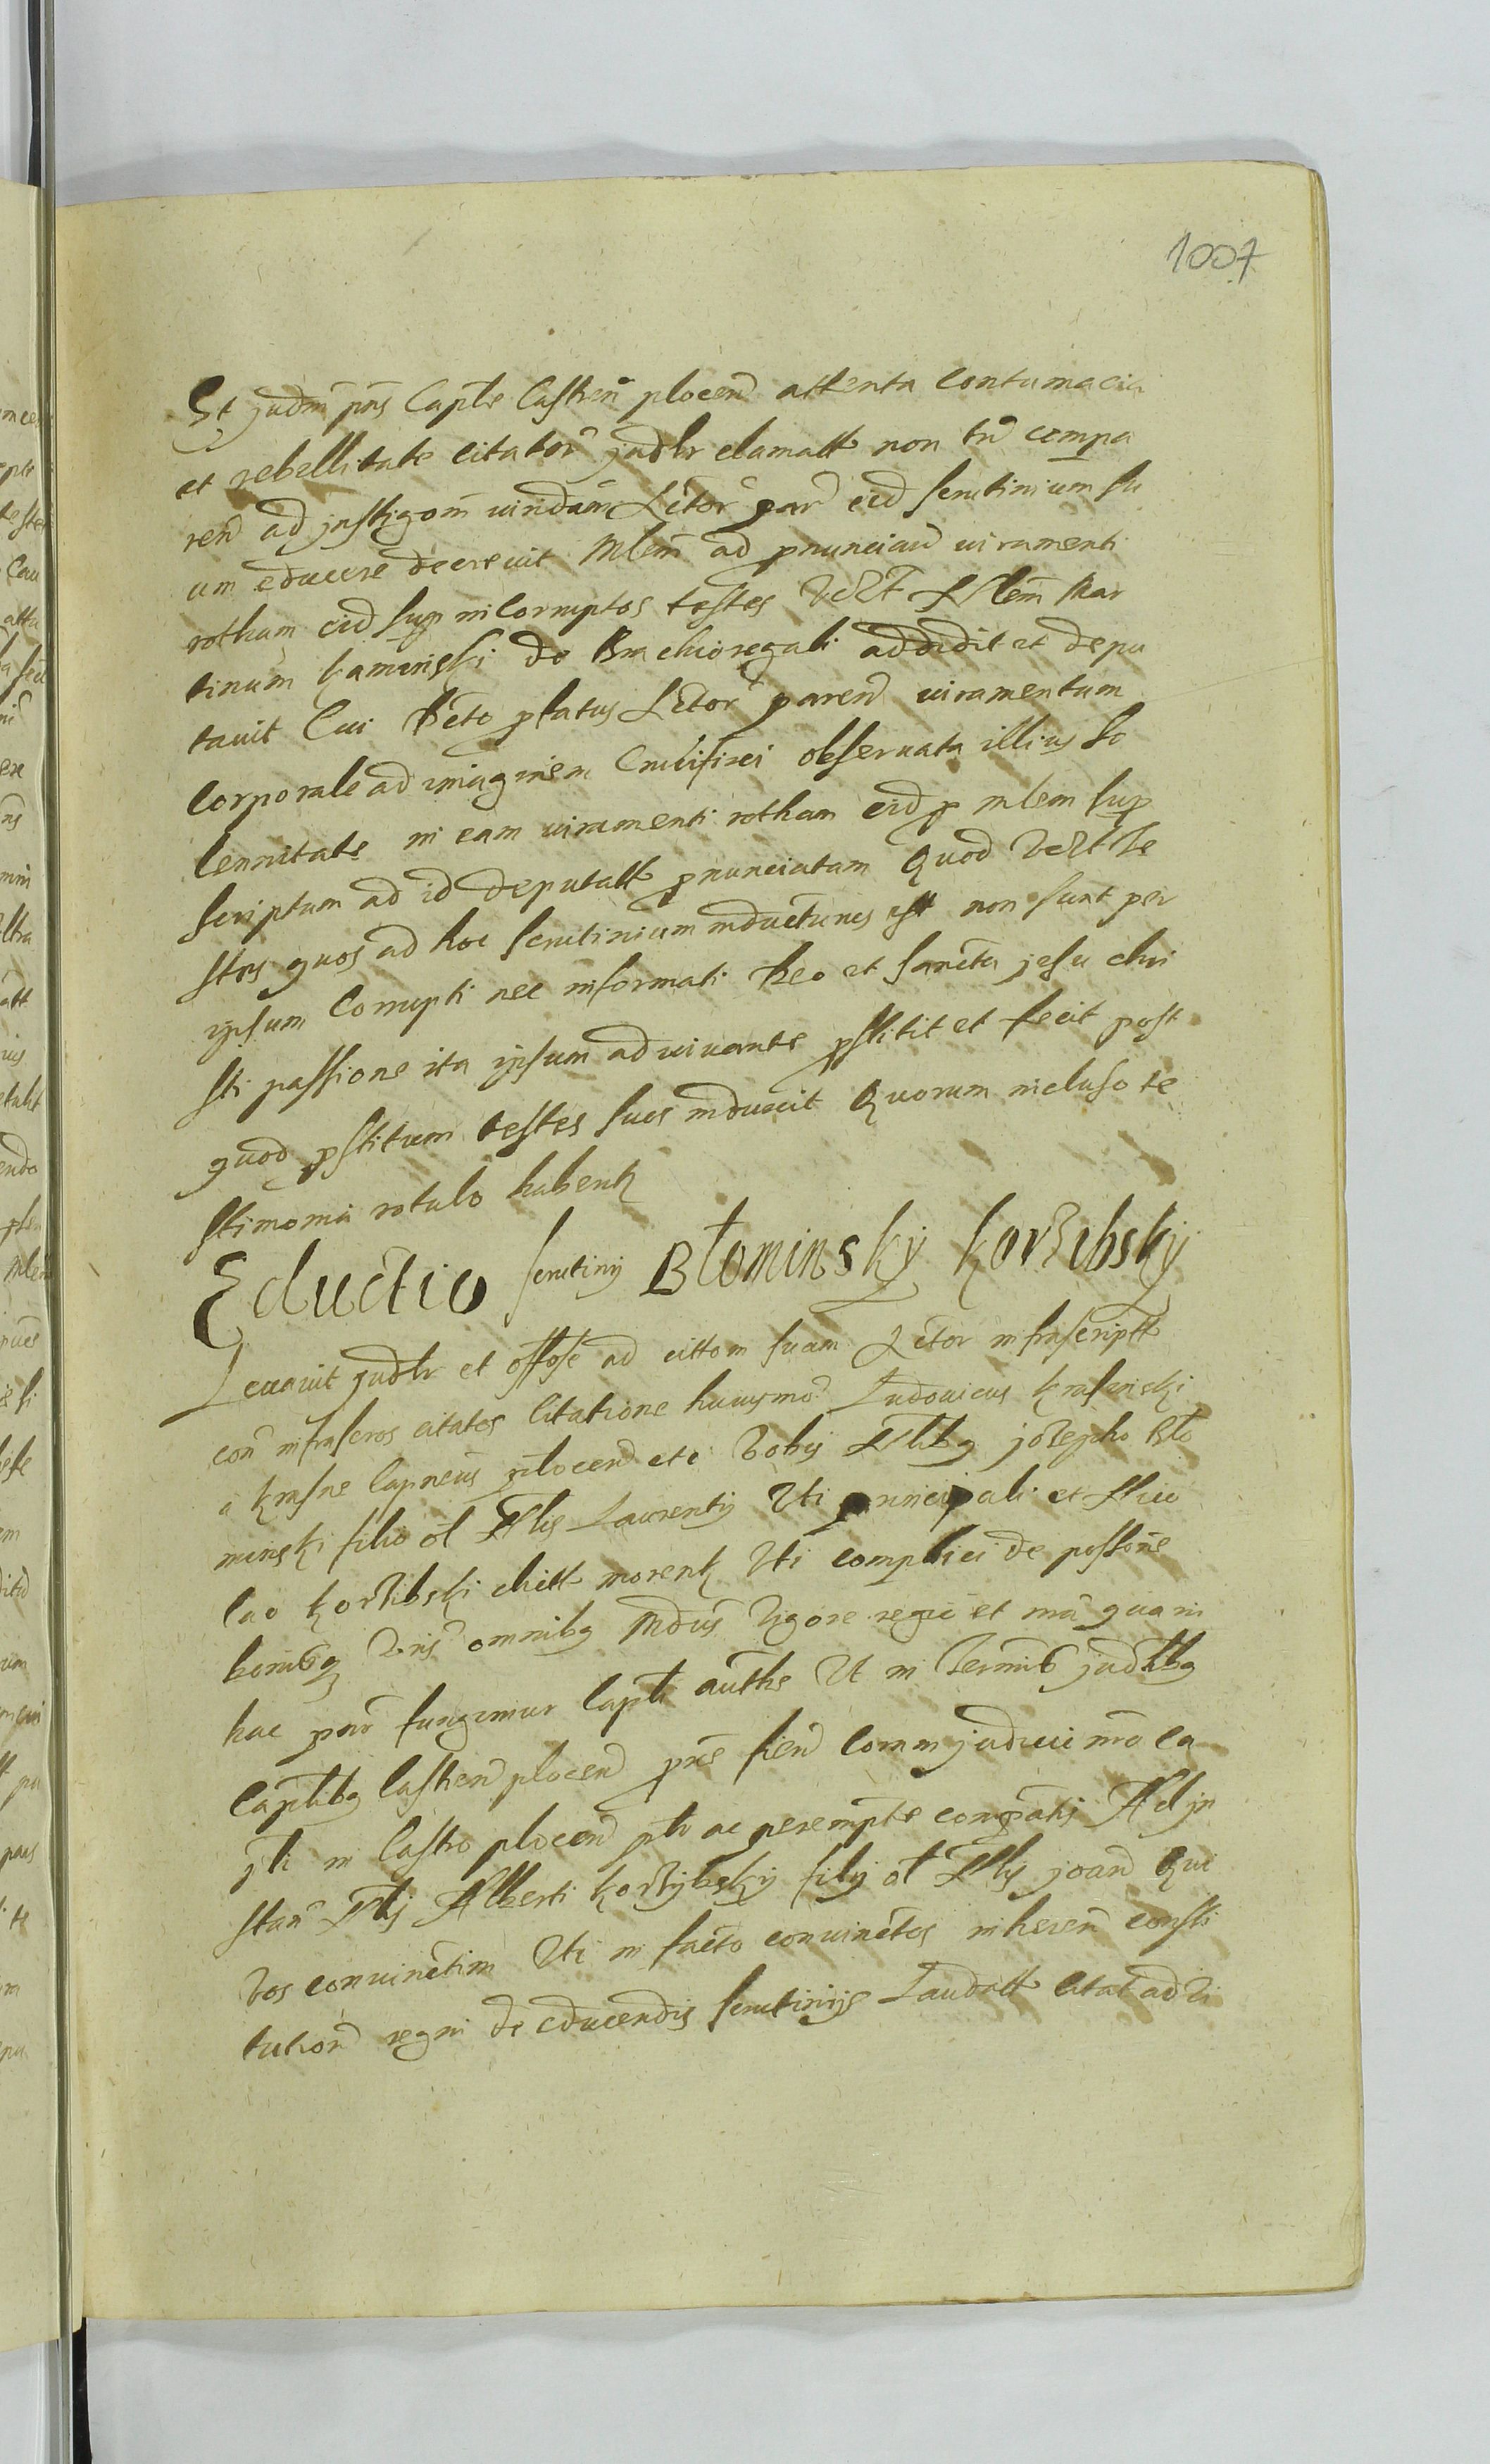 1007
Et judm pns Caple Castren plocen attenta contumacia
et rebellitate citator judlr clamatt non tn compa
ren ad instigom uindam Lctor par eid scrutinium su
um educere decreuit Mlem ad pnunciand iuramenti
rotham eid sup incorruptos testes Vdlt Mlem Mar
tinum Kaminski de Brachioregali addidit et depu
tauit Cui pfatus Lctor paren iuramentum
corporale ad imaginem Crucifixi obseruata illius so
lennitate in eam iuramenti rotham eid p mlem sup
scriptum ad id deputatt pnunciatam Quod Vdlt te
stes quos ad hoc scrutinium inducturus est non sunt per
ipsum corrupti nec informati Deo et sancta jesu chri
sti passione ita ipsum adiuuante pstitit et fecit post
quod pstitum testes suos induxit Quorum incluso te
stimonia rotulo habent
Eductio scrutinij Błominsky Korzibsky
Leuauit judlr et offose ad cittom suam Lctor infrascriptt
con infrascros citatos Citatione huiusmo Ludouicus Krasinski
a Krasne Capneus plocen etc Vobis Nlibq josepho Blo
minski filio ol Nlis Laurentij Vti principali et Nico
lao Korzibski chitt morent Vti complici de possone
bonisq Vris omnibq Mdus Vigore regie et mea qua in
hac par fungimur Capli authe Ut in Terminis judlibq
Caplibq Castren plocen pns fien Coram judicio nro ca
pli in Castro plocen plr ac perempte compatis Ad in
stan Nlis Alberti Korzybskij filij ol Nlis joan Qui
Vos conuinctim Vti in facto conuinctos inheren consti
tution regni de educendis scrutinijs Laudatt citat ad Vi